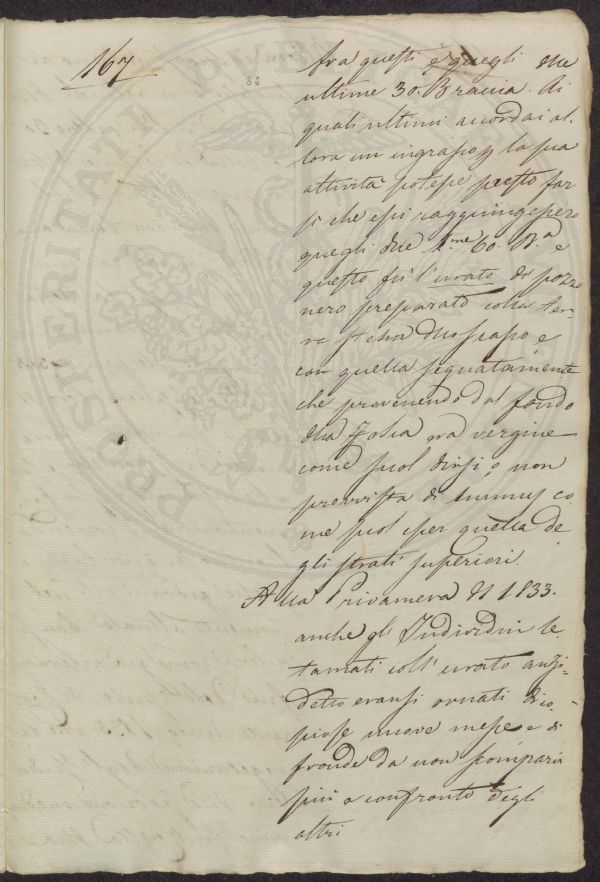 167
84
fra questi e quegli alle
ultime 30. Braccia. Ai
quali ultimi accordai al-
lora un ingrasso pp la sua
attività potesse presto far
si che essi raggiungessero
quegli due 1.me 60. B.a e
questo fu l'urato di pozzo
nero preparato colla ter-
ra stessa dello scasso, e
con quella segnatamente
che provenendo dal fondo
della Fossa era vergine
come suol dirsi, e non
provvista di humus co-
me suol esser quella de-
gli strati superiori.
Alla Primavera del 1833.
anche gl'Individui le-
tamati coll'urato anzi-
detto eransi ornati di co-
piose nuove messe e di
fronde da non scomparir
più a confronto degli
altri